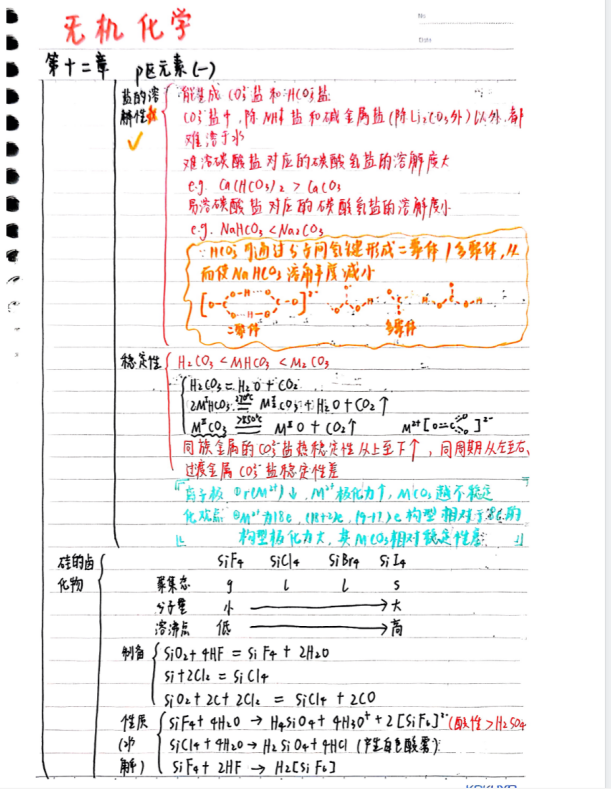 No.
Date
无机化学
第十二章 p区元素(一)
盐的溶解性
能生成CO₃²⁻盐和HCO₃⁻盐
CO₃²⁻盐中,除NH₄⁺盐和碱金属盐(除Li₂CO₃外)以外,都
难溶于水
难溶碳酸盐对应的碳酸氢盐的溶解度大
e.g. Ca(HCO₃)₂ > CaCO₃
易溶碳酸盐对应的碳酸氢盐的溶解度小
e.g. NaHCO₃ < Na₂CO₃
∵HCO₃⁻可通过分子间氢键形成二聚体/多聚体,从
而使NaHCO₃溶解度减小
二聚体 多聚体
稳定性
H₂CO₃ < MHCO₃ < M₂CO₃
H₂CO₃ = H₂O + CO₂
2MᴵHCO₃ =270℃= M₂ᴵCO₃ + H₂O + CO₂↑
MᴵᴵCO₃ =>850℃= MᴵᴵO + CO₂↑ M²⁺[O=C O O]²⁻
同族金属的CO₃²⁻盐热稳定性从上至下↑,同周期从左至右,
过渡金属CO₃²⁻盐稳定性差
离子极化观点 ①r(M²⁺)↓,M²⁺极化力↑,MCO₃越不稳定
②M²⁺为18e,(18+2)e,(9-17)e构型相对于8e的
构型极化力大,其MCO₃相对稳定性差
硅的卤化物
SiF₄ SiCl₄ SiBr₄ SiI₄
聚集态 g l l s
分子量 小 → 大
溶沸点 低 → 高
制备
SiO₂ + 4HF = SiF₄ + 2H₂O
Si + 2Cl₂ = SiCl₄
SiO₂ + 2C + 2Cl₂ = SiCl₄ + 2CO
性质(水解)
SiF₄ + 4H₂O → H₄SiO₄ + 4H₃O⁺ + 2[SiF₆]²⁻ (酸性>H₂SO₄
SiCl₄ + 4H₂O → H₂SiO₄ + 4HCl (产生白色酸雾)
SiF₄ + 2HF → H₂[SiF₆]
KOKUYO